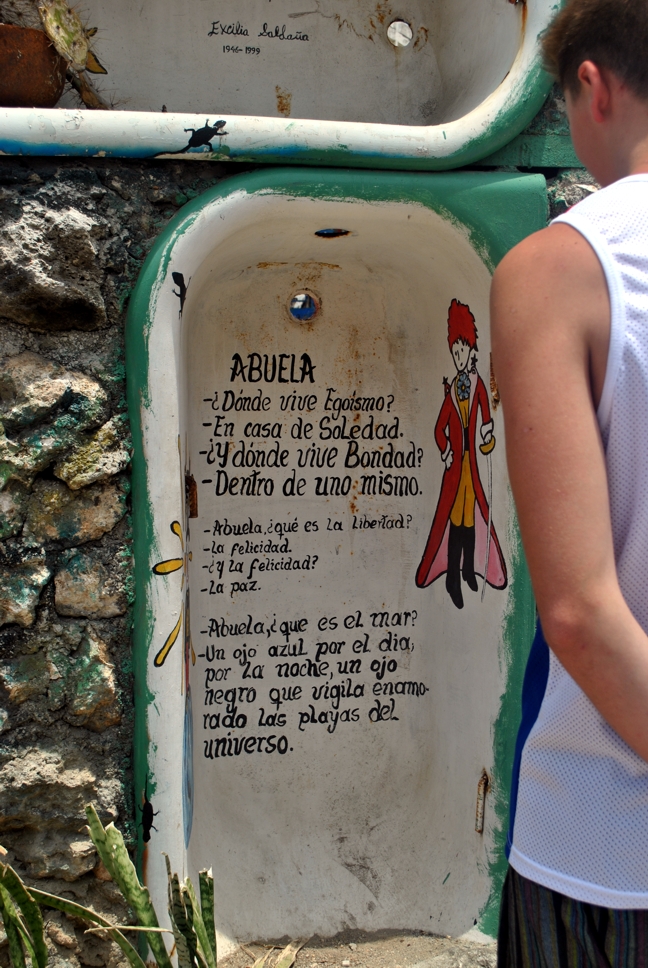 Excilia Saldaña
1946-1999
ABUELA
-¿Dónde vive Egoísmo?
-En casa de Soledad.
-¿Y dónde vive Bondad?
-Dentro de uno mismo.
-Abuela,¿qué es la libertad?
-La felicidad.
-¿y la felicidad?
-La paz.
-Abuela,¿que es el mar?
-Un ojo azul por el día,
por la noche, un ojo
negro que vigila enamo-
rado las playas del
universo.